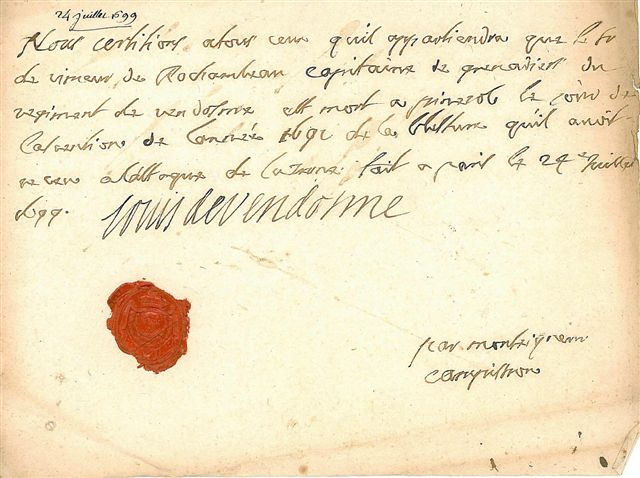 24 juillet 1699
Nous certifions a tous ceux quil appartiendra que le sr
de vimeur de Rochambeau capitaine de grenadiers du
regiment de vendosme est mort a pinerol le jour de
l'année 1692 de la blessure qu'il avoit
receu a lattaque de fait a paris le 24e juillet
1699. louis de vendosme
par monseigneur
campistron